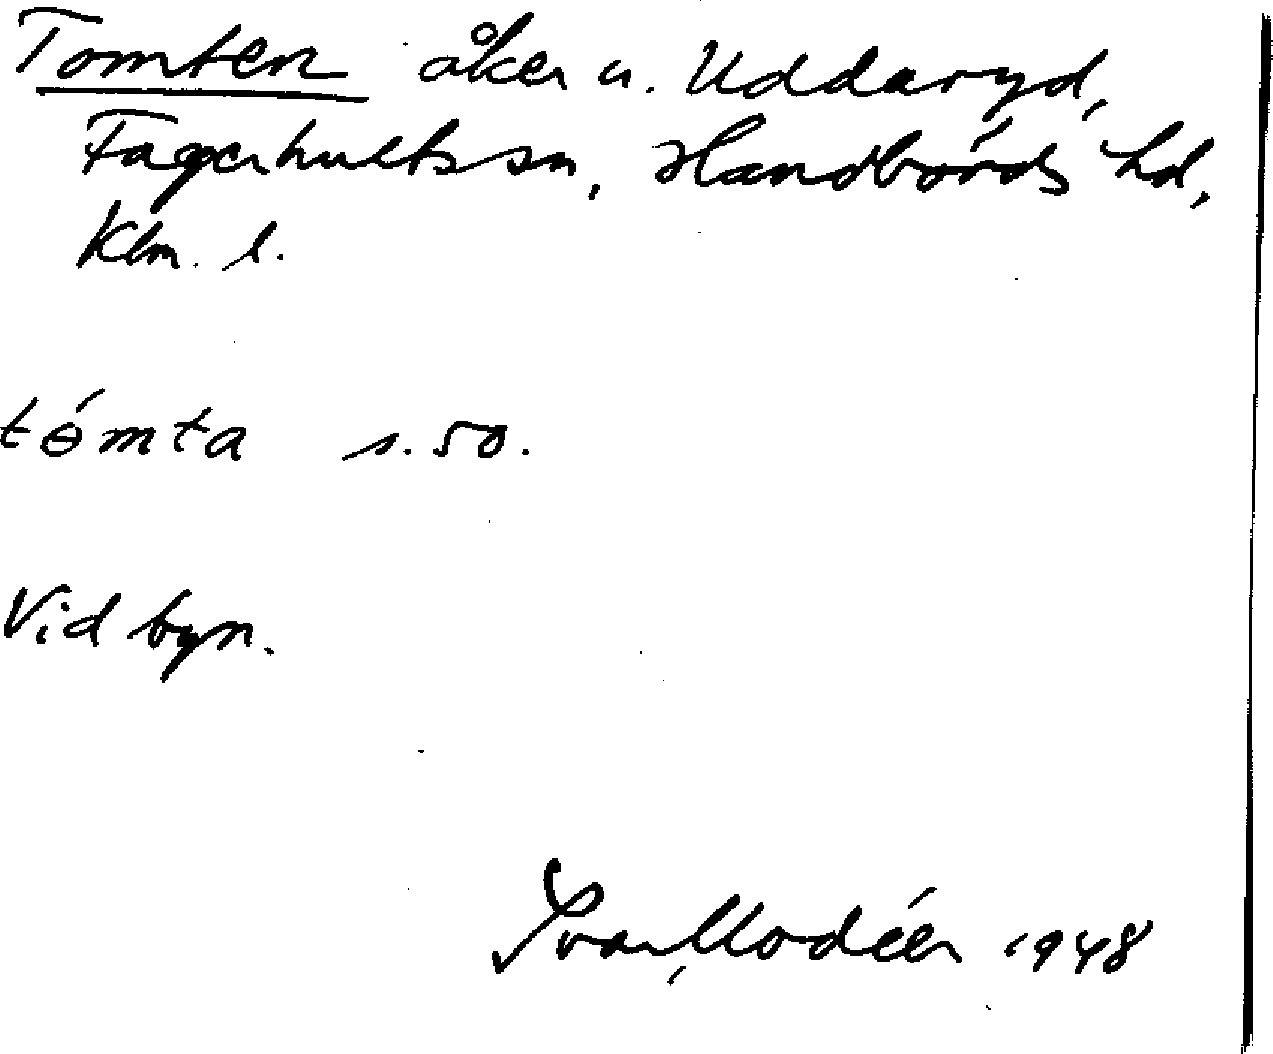 Tomten åker u. Uddaryd,
Fagerhults sn, Handbörds hd,
Klm. l.
tómta s. 50.
Vid byn.
Ivar Modéer 1948